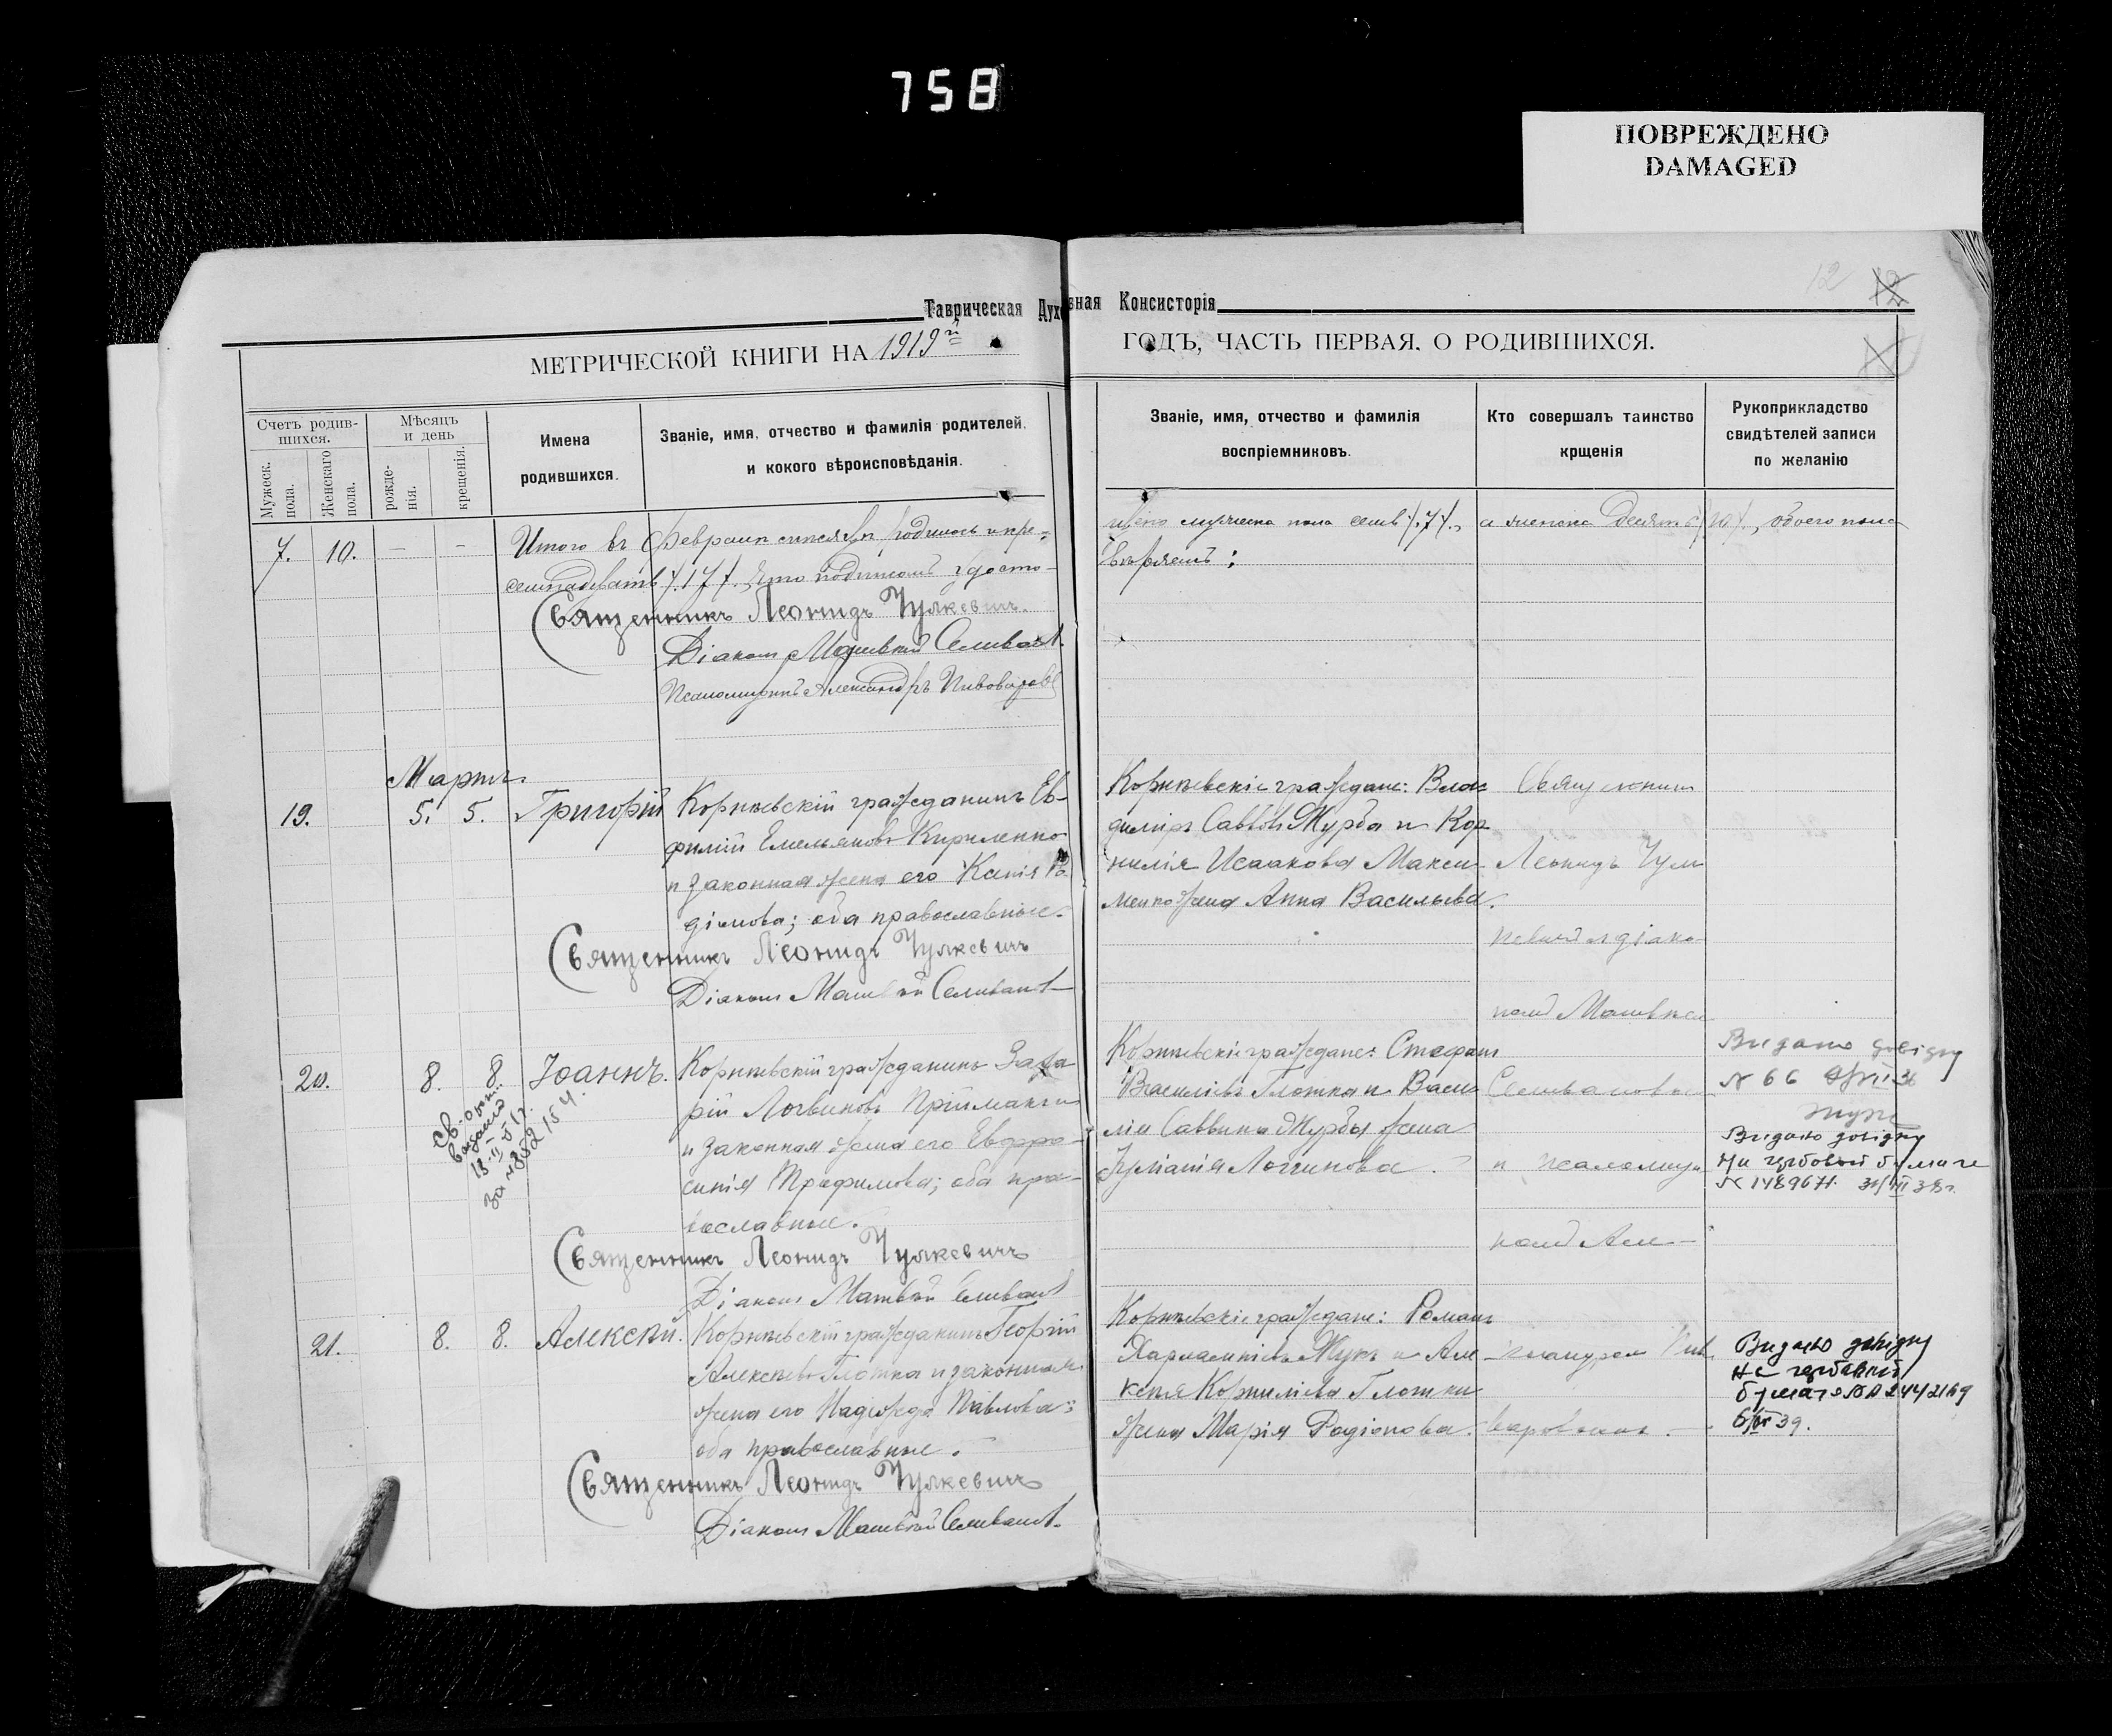 758
ПОВРЕЖДЕНО
DAMAGED
12 12
Таврическая Духовная Консисторія
МЕТРИЧЕСКОЙ КНИГИ НА 1919й ГОДЪ, ЧАСТЬ ПЕРВАЯ, О РОДИВШИХСЯ.
Счетъ родив-
шихся.
Мужеск.
пола.
Женскаго
пола.
Мѣсяцъ
и день
рожде-
нія.
крещенія.
Имена
родившихся.
Званіе, имя, отчество и фамилія родителей,
и кокого вѣроисповѣданія.
Званіе, имя, отчество и фамилія
воспріемниковъ.
Кто совершалъ таинство
крщенія
Рукоприкладство
свидѣтелей записи
по желанію
7. 10. — — Итого въ Февралѣ мѣсяцѣ родилось и кре-
щено мужеска пола семь /.7/., а женска десять /10/., обоего пола
семнадцать /.17/. Что подписомъ удосто-
вѣряемъ:
Священникъ Леонидъ Чулкевичъ.
Діаконъ Матвѣй Селиванов
Псаломщикъ Александръ Пивоваровъ
Мартъ.
19. 5. 5. Григорій
Корнѣевскій гражданинъ Ев-
фимій Емельяновъ Кириленко
и законная жена его Ксенія Ро
діонова; оба православные.
Священникъ Леонидъ Чулкевичъ
Діаконъ Матвѣй Селиванов
Корнѣевскіе граждане: Влa
диміръ Саввовъ Журба и Кор
нилія Исаакова Макси-
менко жена Анна Васильева.
Священникъ
Леонидъ Чул
кевичъ и діако
номъ Матвѣем
20. 8. 8. Іоаннъ.
Св-о рож.
выдано
13-II-51г.
за №
Корнѣевскій гражданинъ Заха
рій Логвиновъ Прійма
и законная жена его Евфро-
синія Трофимова; оба пра-
вославные.
Священникъ Леонидъ Чулкевичъ
Діаконъ Матвѣй Селиванов
Корнѣевскіе граждане: Стефанъ
Василіевъ Глотка и Васи
лія Саввина Журбы жена
Іуліанія Логгинова.
Селивановым
и псаломщи
комъ Але-
Видано довідку
N 66
Видано довідку
На гербовой бумаге
N 148967 31/III 38г.
21. 8. 8. Алексѣй.
Корнѣевскій гражданинъ Георгій
Алексѣевъ Глотка и законная
жена его Надежда Павлова;
оба православные.
Священникъ Леонидъ Чулкевичъ
Діаконъ Матвѣй Селиванов
Корнѣевскіе граждане: Романъ
Харлампіевъ Жукъ и Але
ксѣя Корниліева Глотки
жена Марія Родіонова.
ксандромъ Пиво
варовымъ.
Видано довідку
на гербовой
бумаге
39.